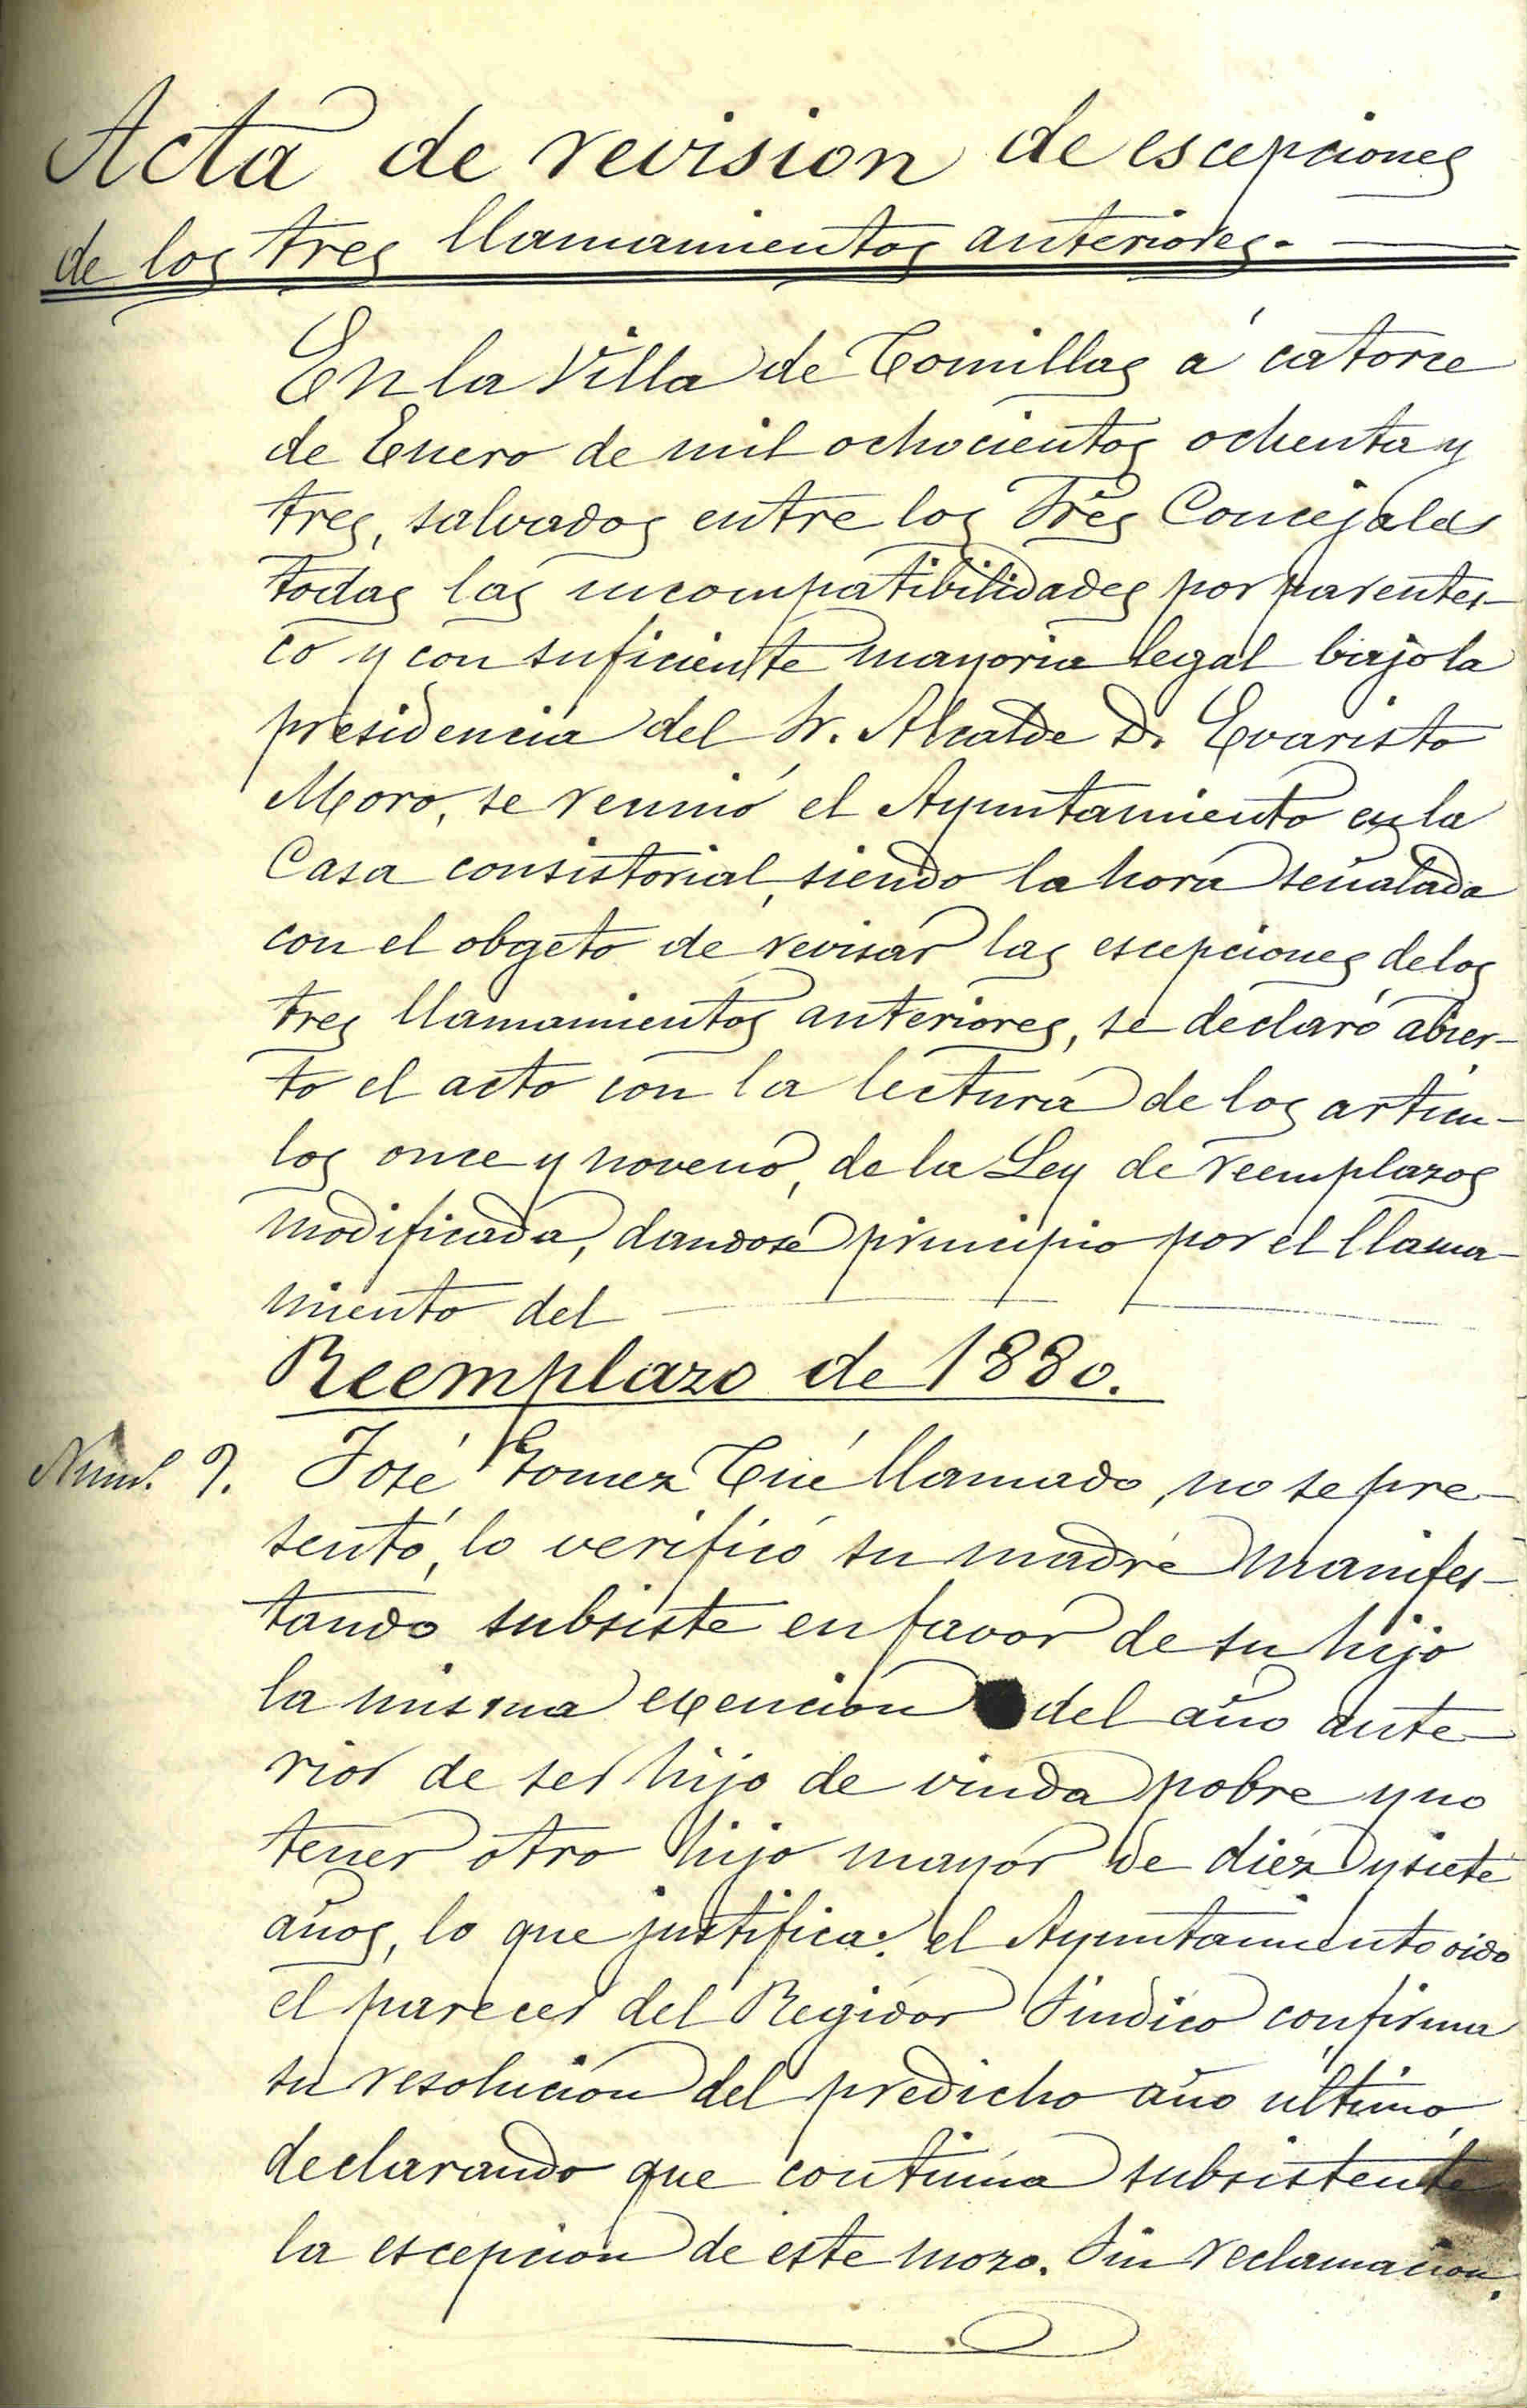 Acta de revision de escepciones
de los tres llamamientos anteriores.
En la Villa de Comillas á catorce
de Enero de mil ochocientos ochenta y
tres, salvados entre los Sres Concejales
todas las incompatibilidades por parentes-
co y con suficiente mayoria legal bajo la
presidencia del Sr. Alcalde D. Evaristo
Moro, se reunió el Ayuntamiento en la
Casa consistorial, siendo la hora señalada
con el obgeto de revisar las escepciones de los
tres llamamientos anteriores, se declaró abier-
to el acto con la lectura de los artícu-
los once y noveno, de la Ley de reemplazos
modificada, dandose principio por el llama-
miento del
Reemplazo de 1880.
Núm. 9. José Gomez Cué llamado, no se pre-
sentó, lo verificó su madre manifes-
tando subsiste en favor de su hijo
la misma exención del año ante-
rior de ser hijo de viuda pobre y no
tener otro hijo mayor de diez y siete
años, lo que justifica: el Ayuntamiento oido
el parecer del Regidor Sindico confirma
su resolución del predicho año último,
declarando que continúa subsistente
la escepción de este mozo. Sin reclamacion.